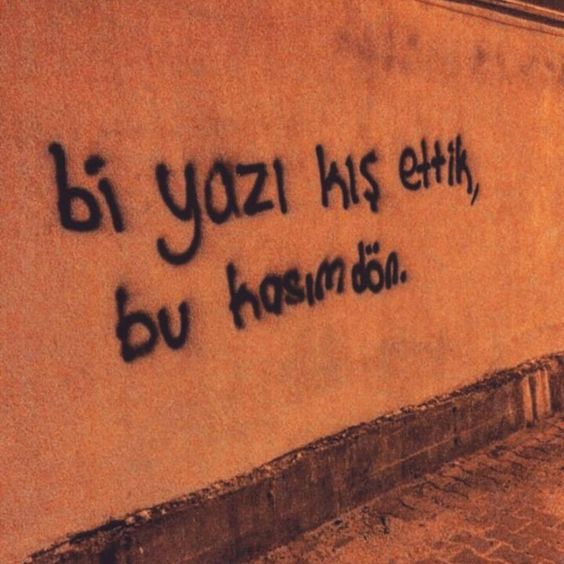 bi yazı kış ettik,
bu kasım dön.